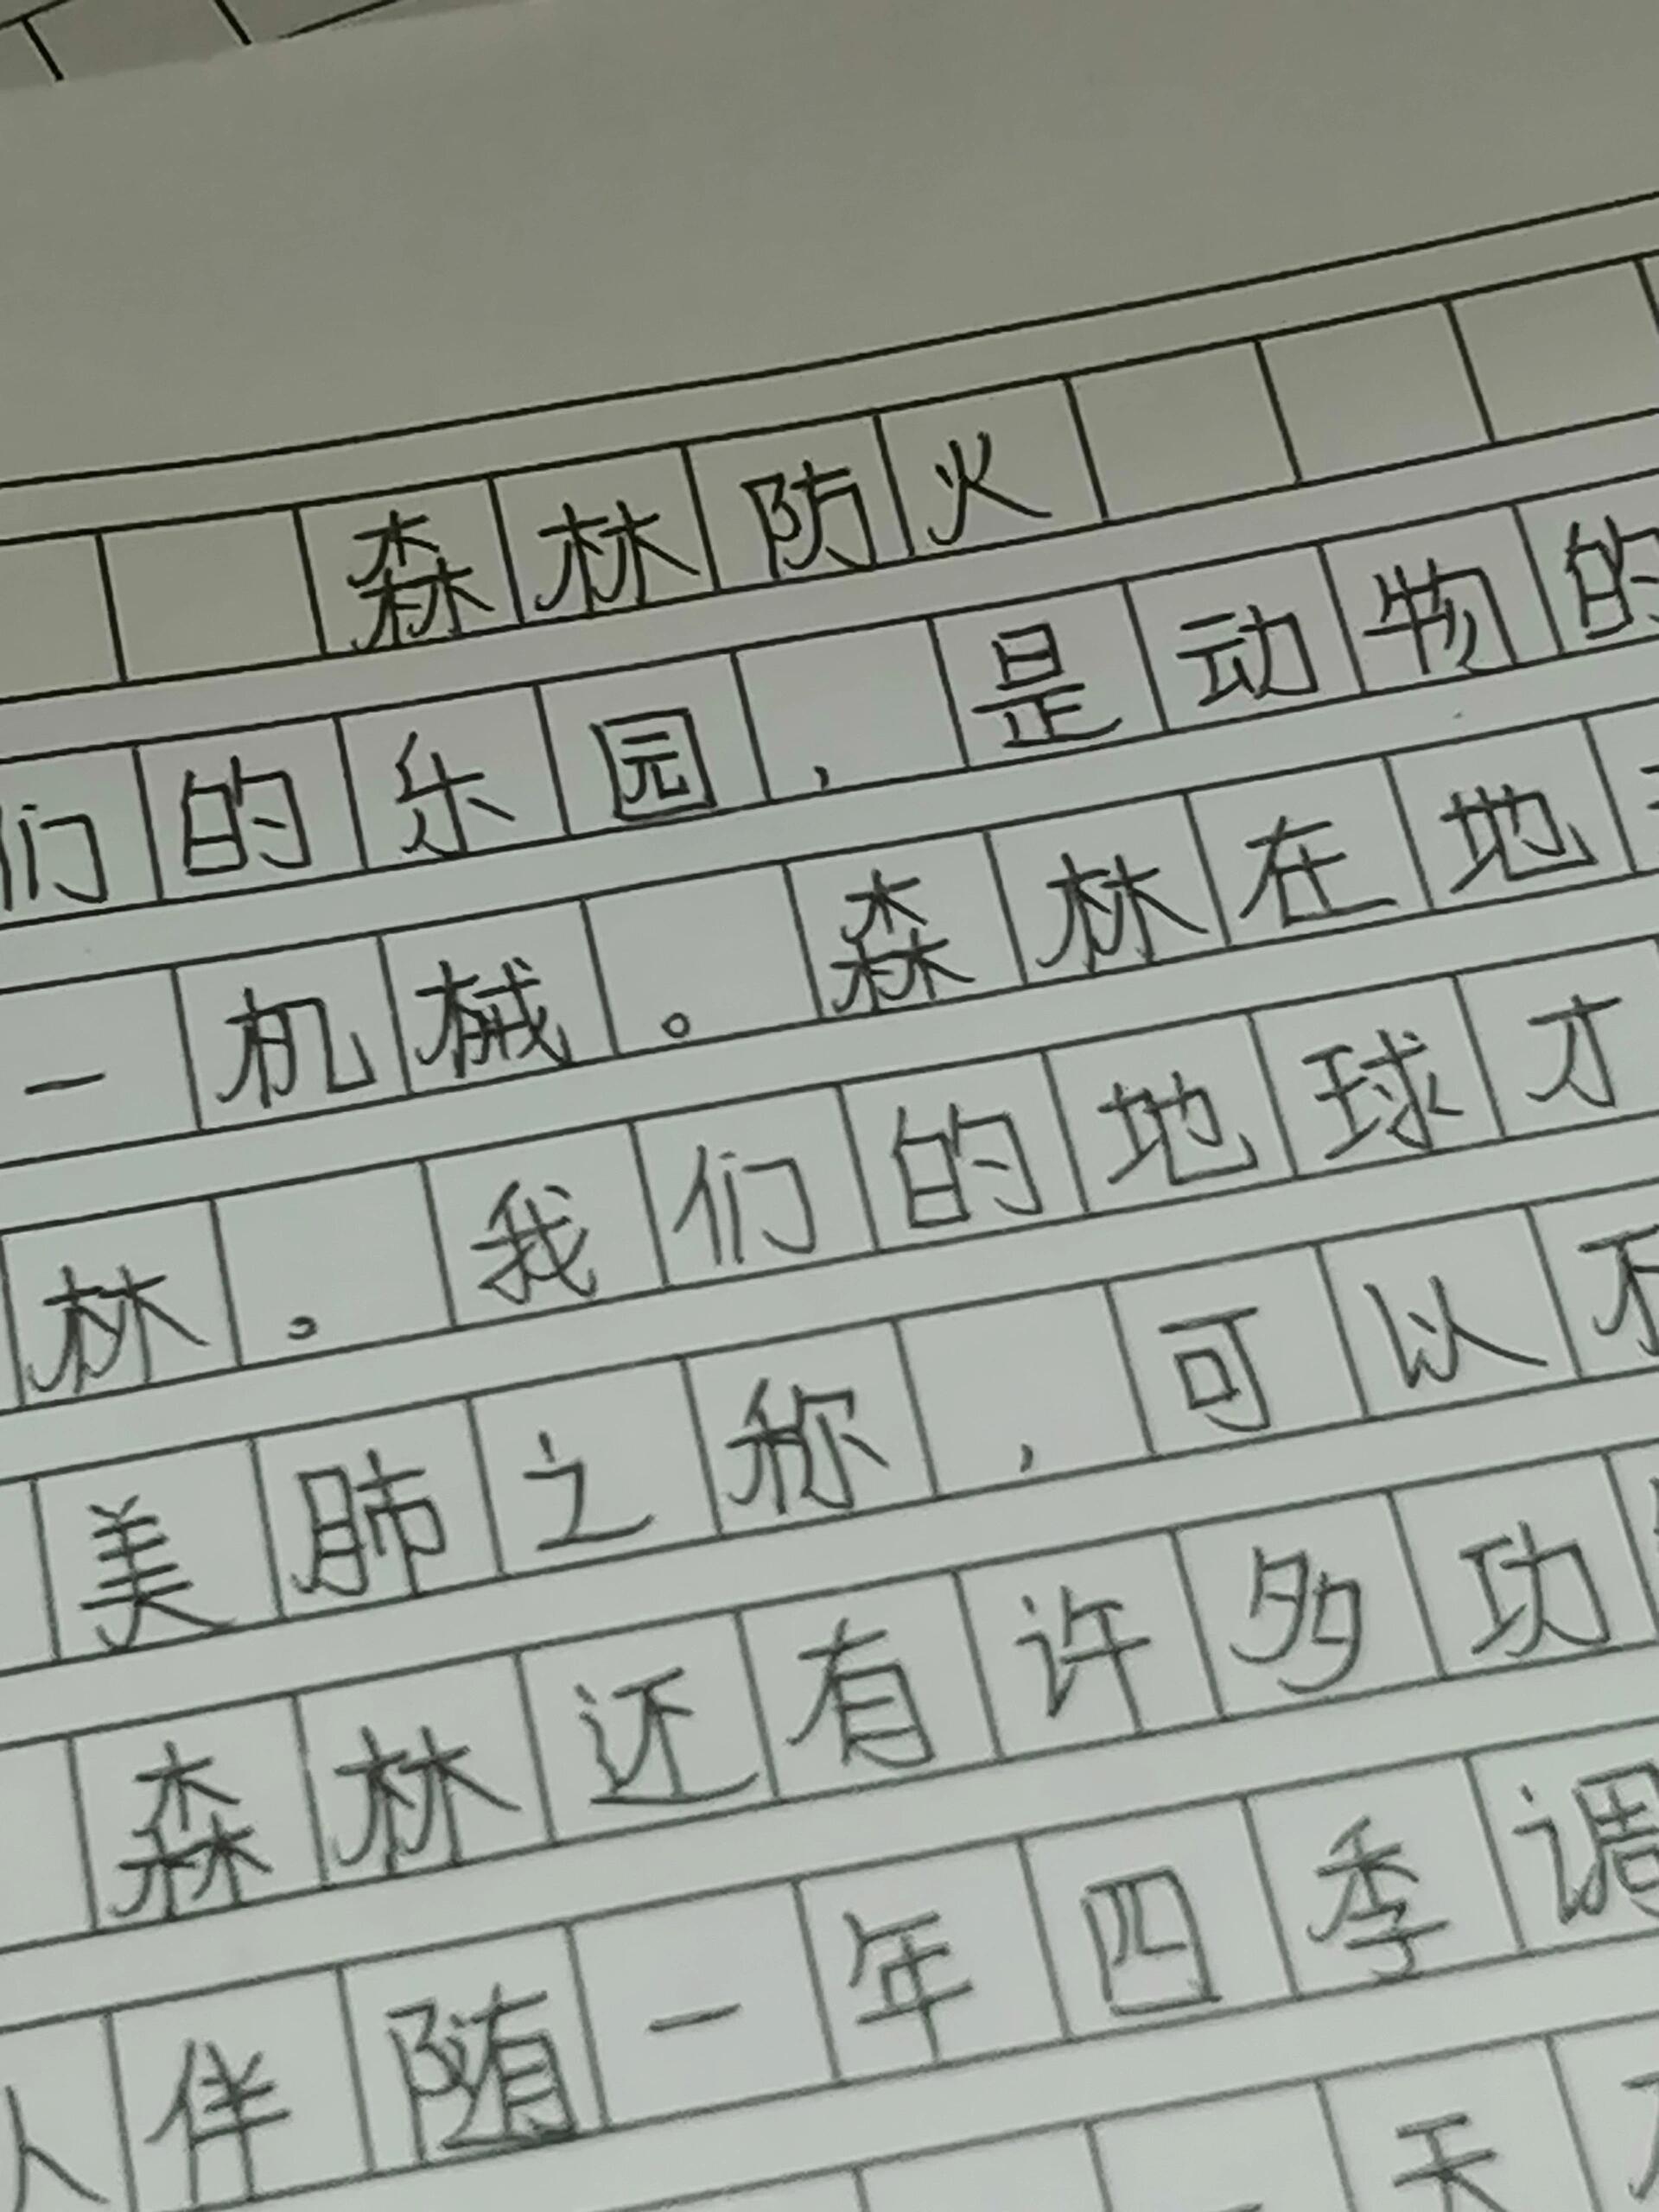 森林防火
们的乐园，是动物的
一机械。森林在地
林。我们的地球才
美肺之称，可以不
森林还有许多功
人伴随一年四季调
一天